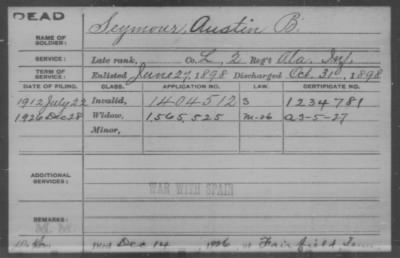 DEAD
NAME OF SOLDIER: Seymour, Austin B.
SERVICE: Late rank, Co. L, 2 Reg't Ala. Inf.
TERM OF SERVICE: Enlisted June 27, 1898 Discharged Oct. 31, 1898
DATE OF FILING. CLASS. APPLICATION NO. LAW. CERTIFICATE NO.
1912 July 22 Invalid, 1404512 S 1234781
1926 Dec 28 Widow, 1565,525 M-26 a3-5-27
Minor,
ADDITIONAL SERVICES:
WAR WITH SPAIN
REMARKS:
Died Dec 14 1926, at Fairfield